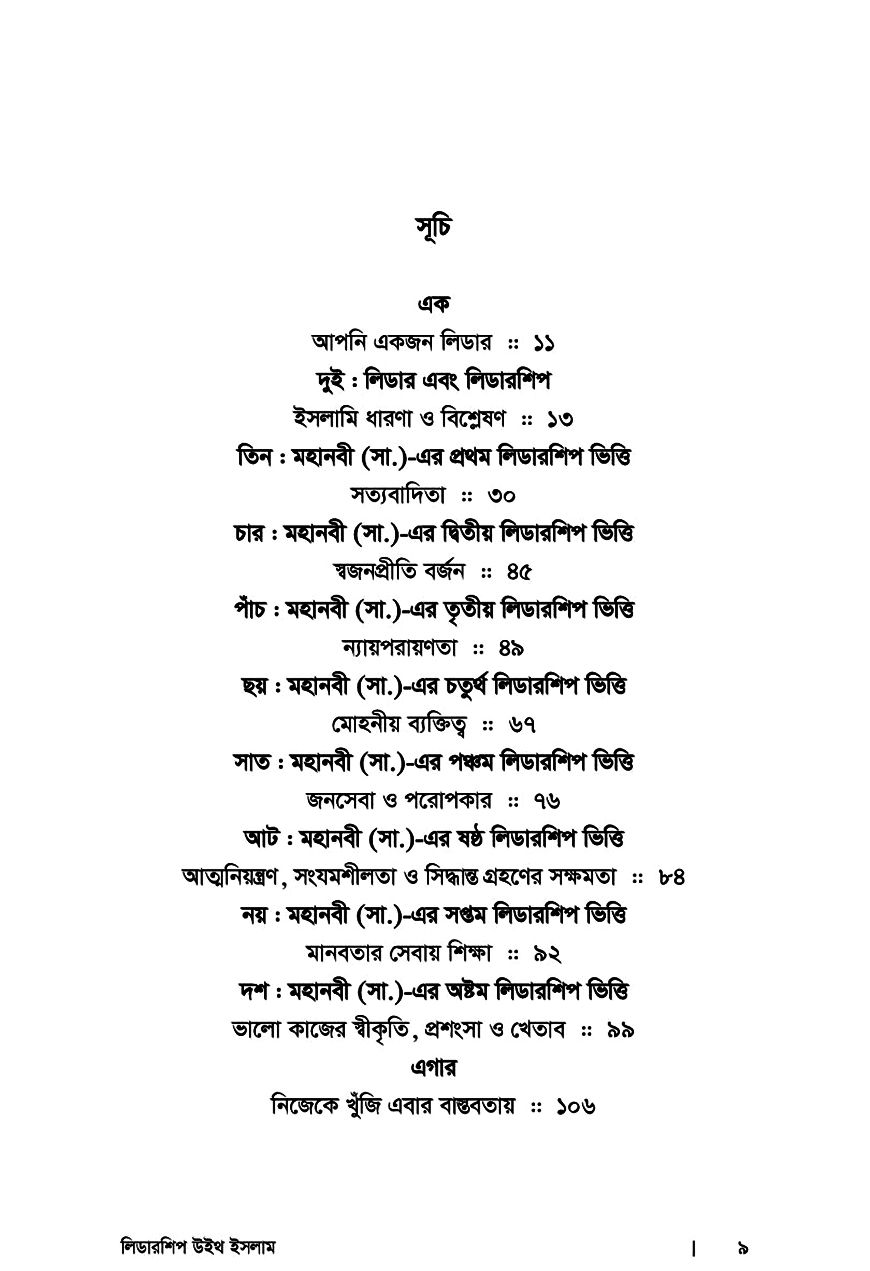 সূচি
এক
আপনি একজন লিডার :: ১১
দুই : লিডার এবং লিডারশিপ
ইসলামি ধারণা ও বিশ্লেষণ :: ১৩
তিন : মহানবী (সা.)-এর প্রথম লিডারশিপ ভিত্তি
সত্যবাদিতা :: ৩০
চার : মহানবী (সা.)-এর দ্বিতীয় লিডারশিপ ভিত্তি
স্বজনপ্রীতি বর্জন :: ৪৫
পাঁচ : মহানবী (সা.)-এর তৃতীয় লিডারশিপ ভিত্তি
ন্যায়পরায়ণতা :: ৪৯
ছয় : মহানবী (সা.)-এর চতুর্থ লিডারশিপ ভিত্তি
মোহনীয় ব্যক্তিত্ব :: ৬৭
সাত : মহানবী (সা.)-এর পঞ্চম লিডারশিপ ভিত্তি
জনসেবা ও পরোপকার :: ৭৬
আট : মহানবী (সা.)-এর ষষ্ঠ লিডারশিপ ভিত্তি
আত্মনিয়ন্ত্রণ, সংযমশীলতা ও সিদ্ধান্ত গ্রহণের সক্ষমতা :: ৮৪
নয় : মহানবী (সা.)-এর সপ্তম লিডারশিপ ভিত্তি
মানবতার সেবায় শিক্ষা :: ৯২
দশ : মহানবী (সা.)-এর অষ্টম লিডারশিপ ভিত্তি
ভালো কাজের স্বীকৃতি, প্রশংসা ও খেতাব :: ৯৯
এগার
নিজেকে খুঁজি এবার বাস্তবতায় :: ১০৬
লিডারশিপ উইথ ইসলাম | ৯